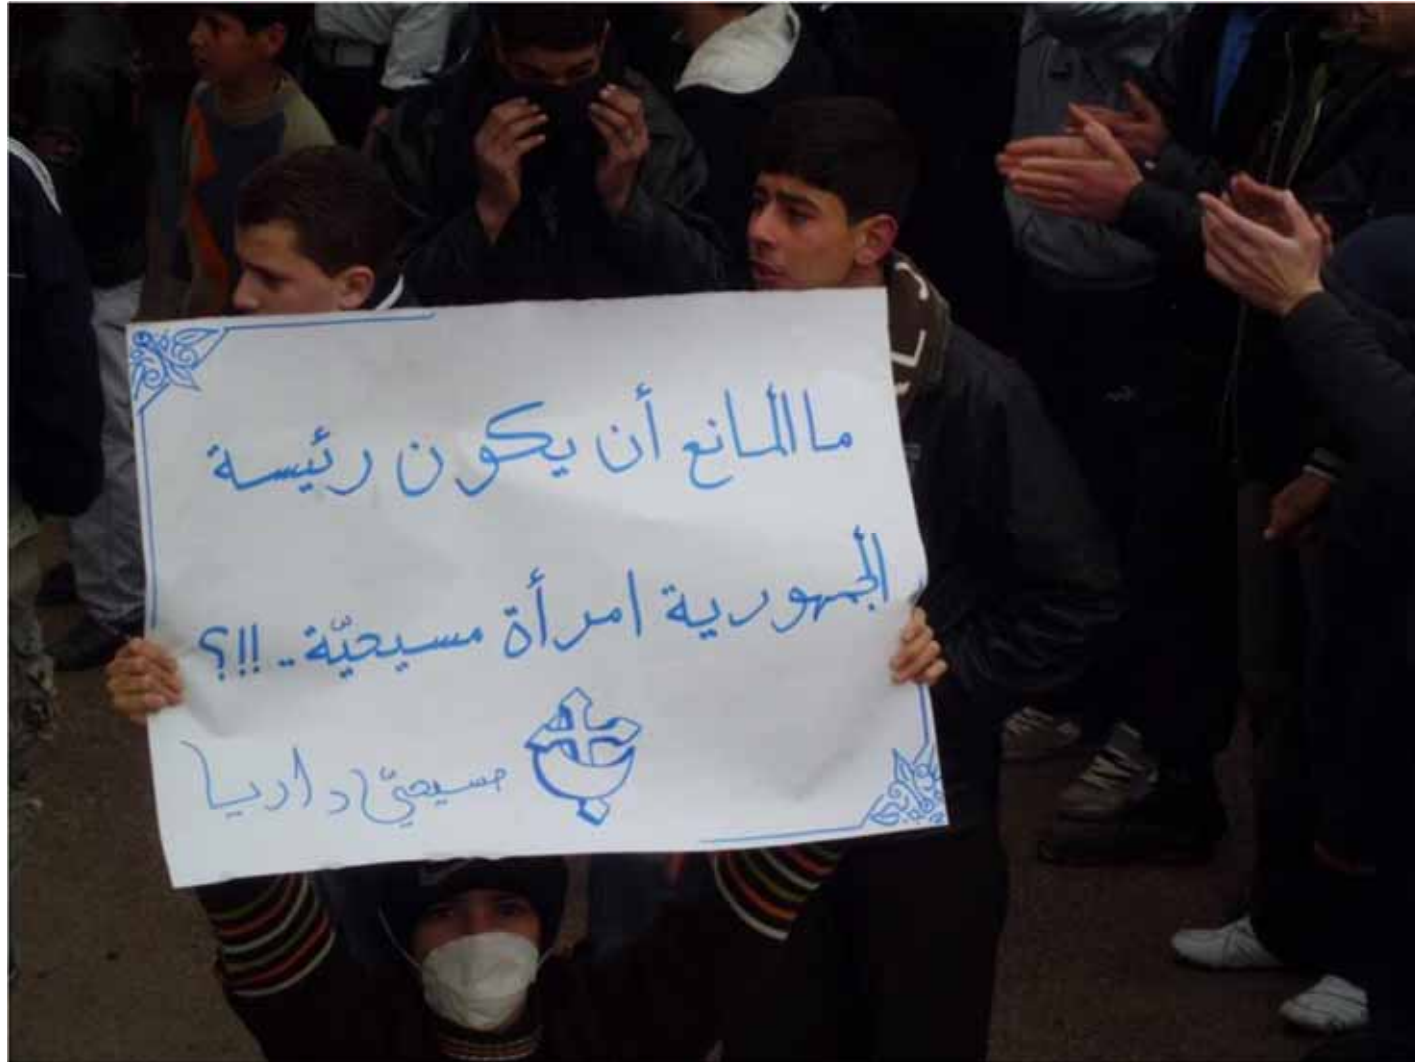 ما المانع أن يكون رئيسة
الجمهورية امرأة مسيحيّة..!!؟
مسيحيّ داريا